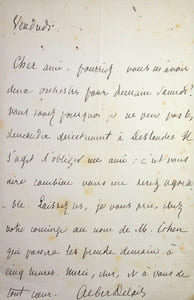 Vendredi.
Cher ami, pourriez vous m'avoir
deux orchestres pour demain Samedi?
Vous savez pourquoi je ne veux pas les
demander directement à Deslandes. Il
s'agit d'obliger une amie : c'est vous
dire combien vous me serez agréa-
ble. Laissez les, je vous prie, chez
votre concierge au nom de M. Cohen
qui passera les prendre demain à
cinq heures. Merci, cher, et à vous de
tout cœur. Albert Delpit